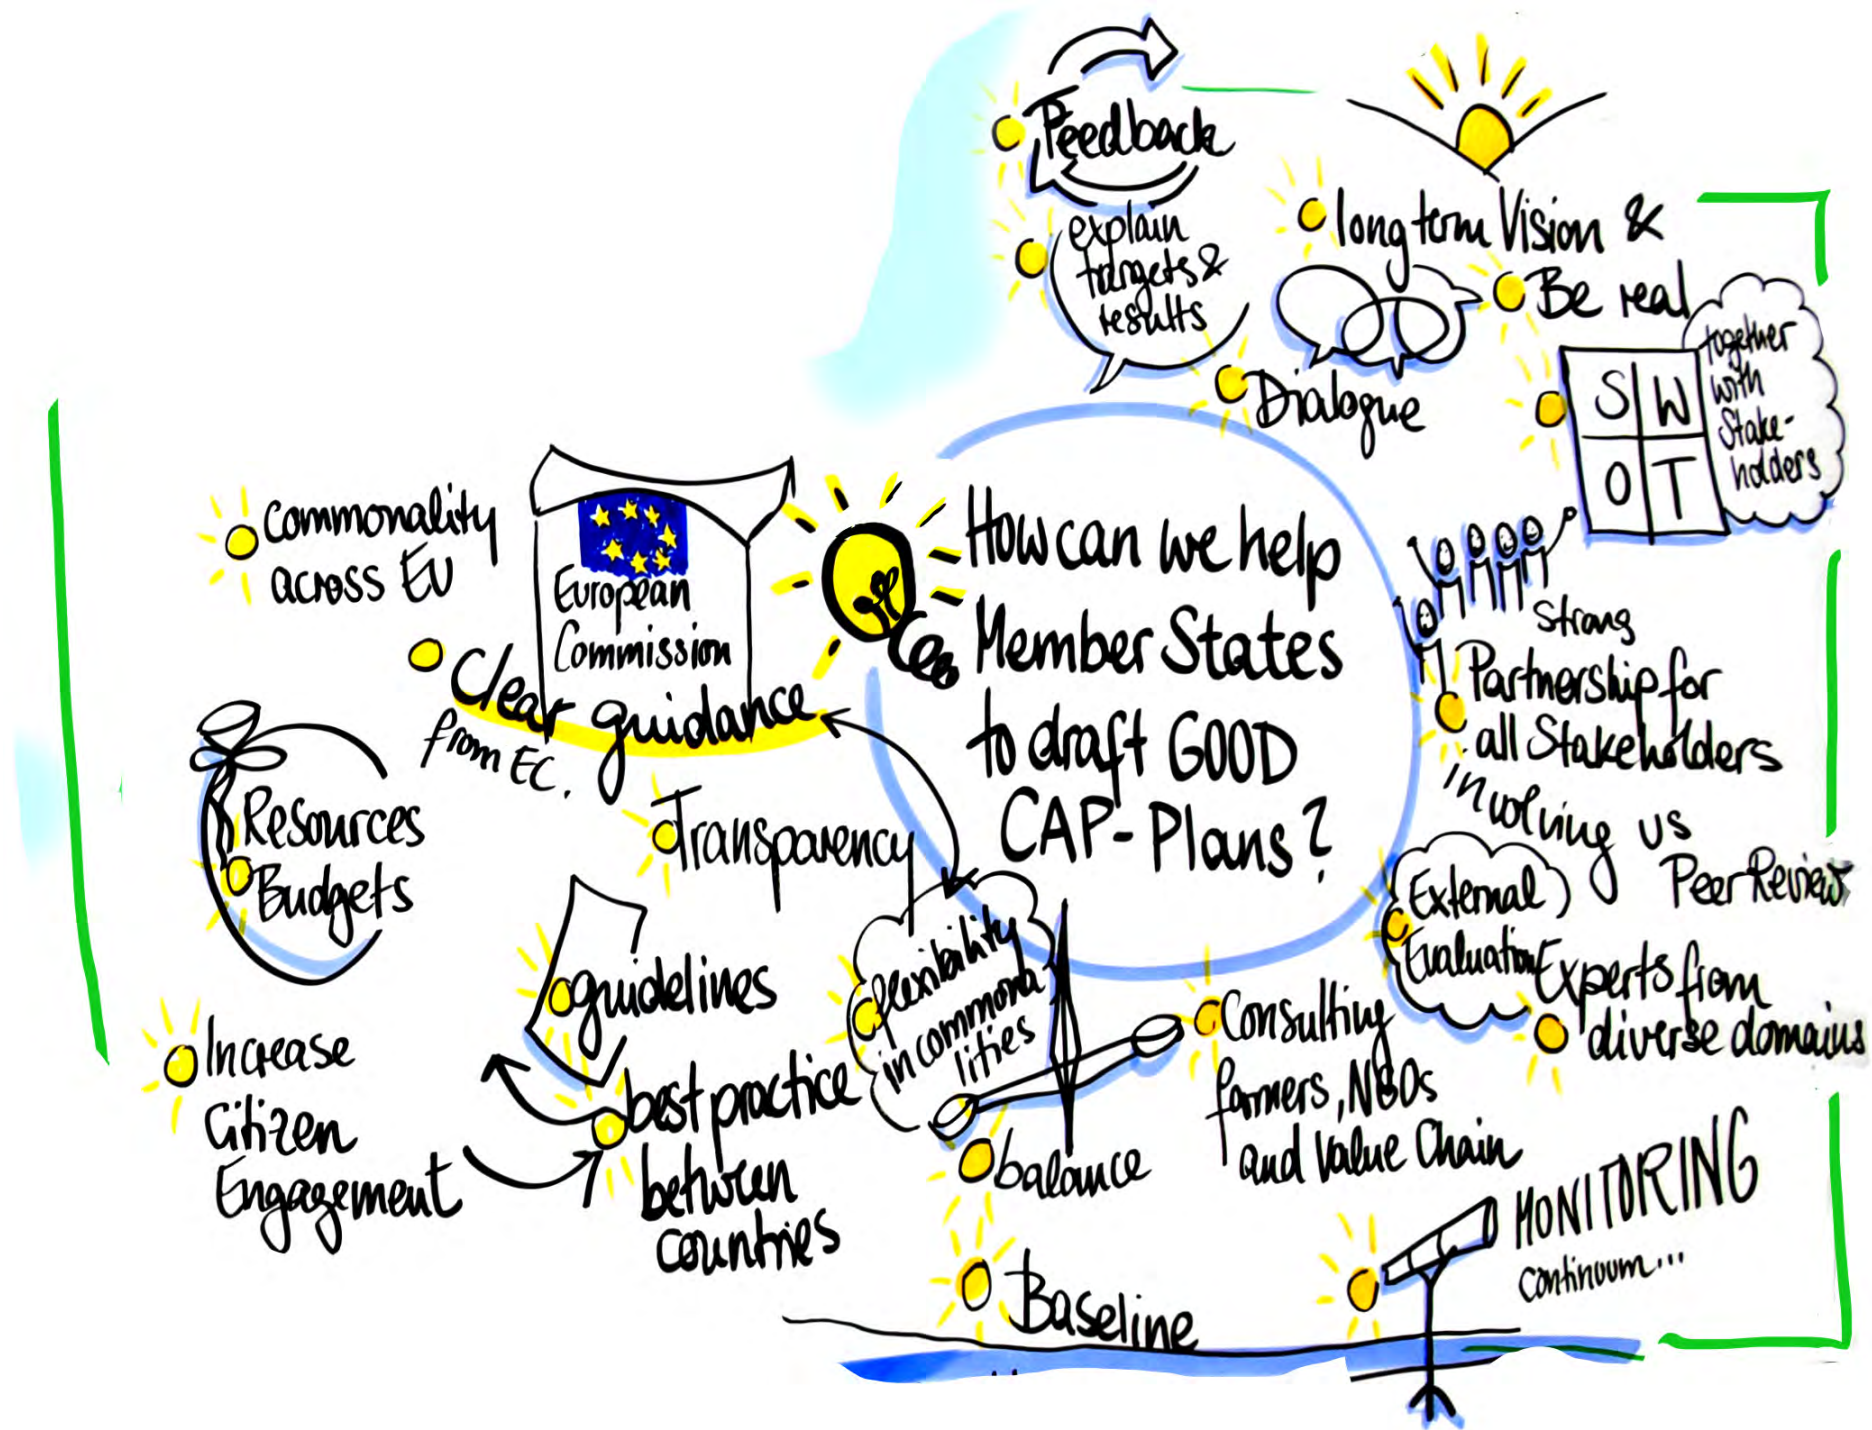 Feedback
explain
targets &
results
long term Vision &
Be real
Dialogue
S W
O T
together
with
Stake-
holders
Commonality
across EU
European
Commission
Clear guidance
from EC.
How can we help
Member States
to draft GOOD
CAP-Plans?
Strong
Partnership for
all Stakeholders
involving us
Resources
Budgets
Transparency
External
Evaluation
Peer Review
Experts from
diverse domains
guidelines
flexibility
in commona
lities
Consulting
farmers, NGOs
and Value Chain
Increase
Citizen
Engagement
best practice
between
countries
balance
Baseline
MONITORING
continuum...